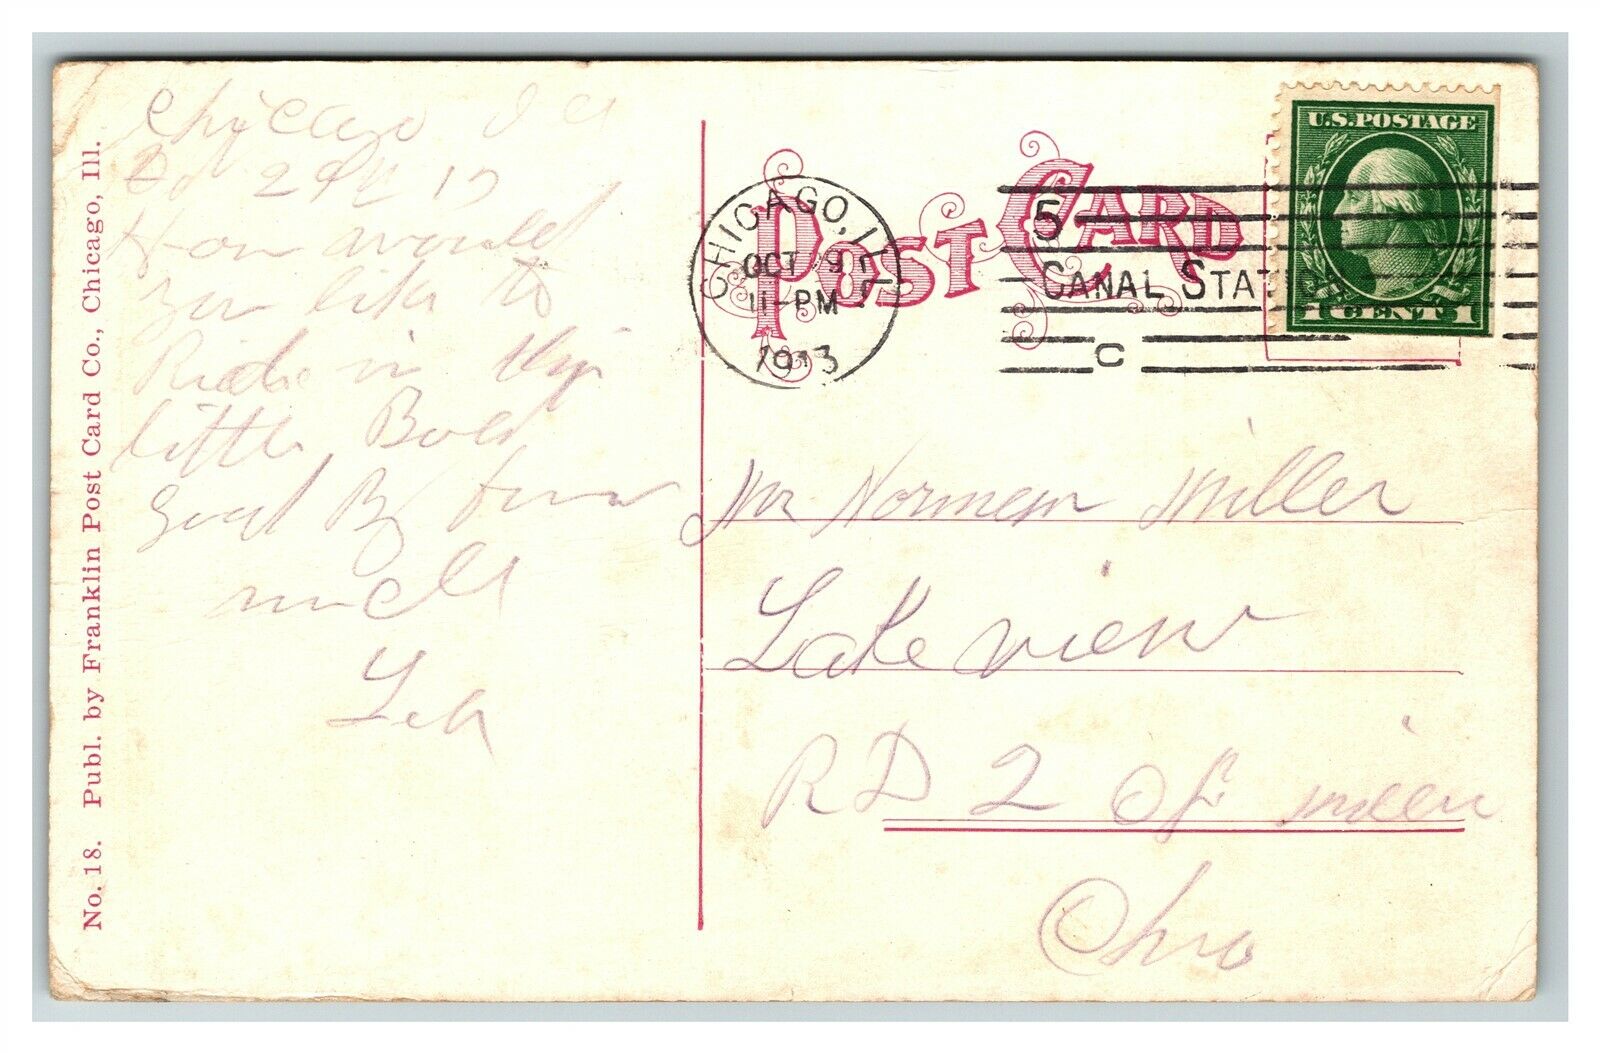 No. 18. Publ. by Franklin Post Card Co., Chicago, Ill.
Chicago Ill
29
How would
you like to
Ride in this
little Boat
good By from
uncle
POST CARD
CHICAGO, ILL.
OCT 9
11-PM
1913
5
CANAL STATION
C
U.S. POSTAGE
1 CENT 1
Mr Norman Miller
Lakeview
RD 2
Ohio